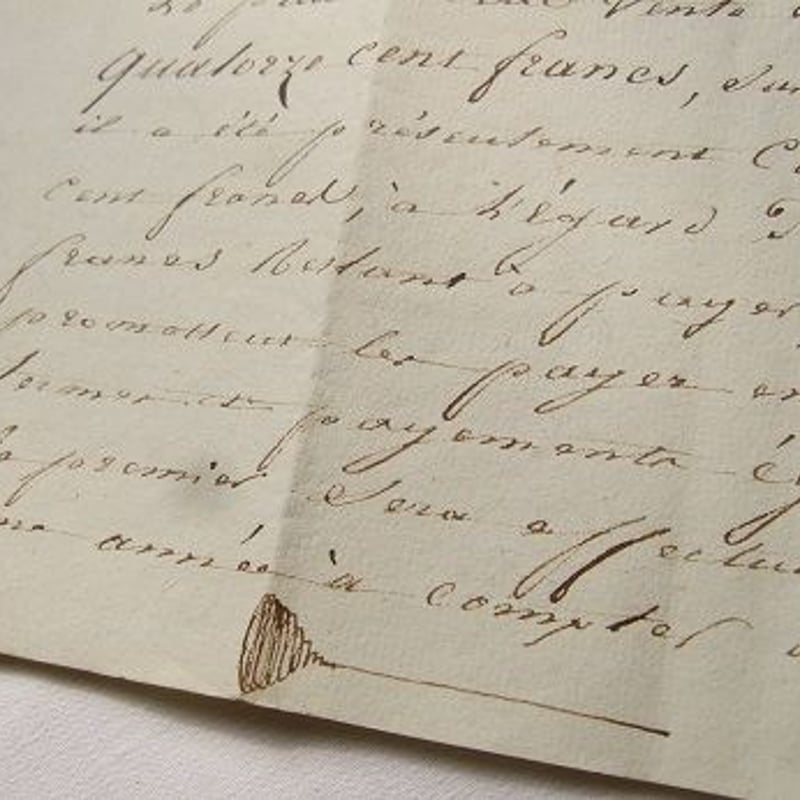 vente
quatorze cent francs, sur
il a été présentement
cent francs, à l'égard
francs Restant à payer
promettent les payer en
termes et payements
le premier Sera effectu
une année à compter